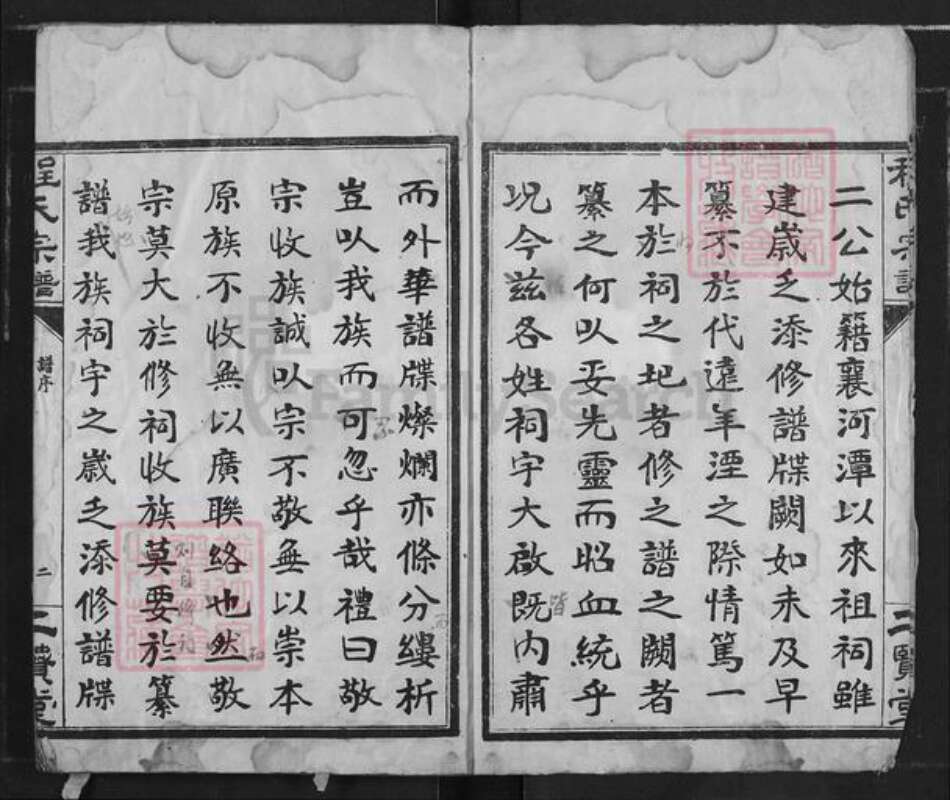 二公始籍襄河潭以來祖祠雖
建歲乏添修譜牒闕如未及早
纂不於代遠年湮之際情篤一
本於祠之圮者修之譜之闕者
纂之何以妥先靈而昭血統乎
况今茲各姓祠宇大啟既內肅
而外華譜牒燦爛亦條分縷析
豈以我族而可忽乎哉禮曰敬
宗收族誠以宗不敬無以崇本
原族不收無以廣聯絡也然敬
宗莫大於修祠收族莫要於纂
譜我族祠宇之歲乏添修譜牒
程氏宗譜
譜序
二
二賢堂
FamilySearch